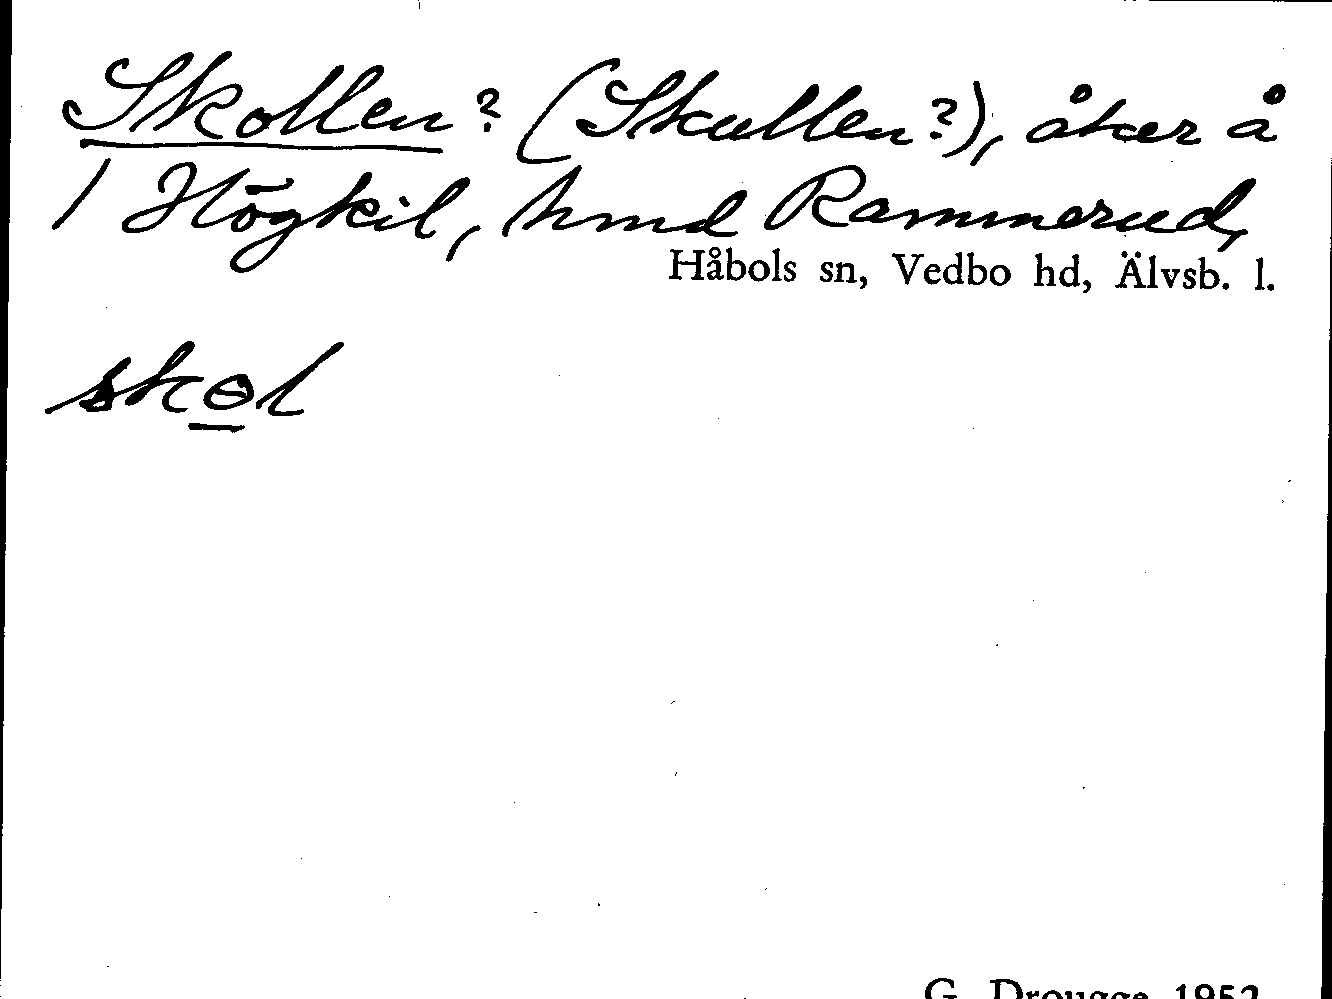 Skollen? (Skullen?), åker å
1 Högkil, hmd Rammerud,
Håbols sn, Vedbo hd, Älvsb. l.
skɵl
G. Drougge 1952